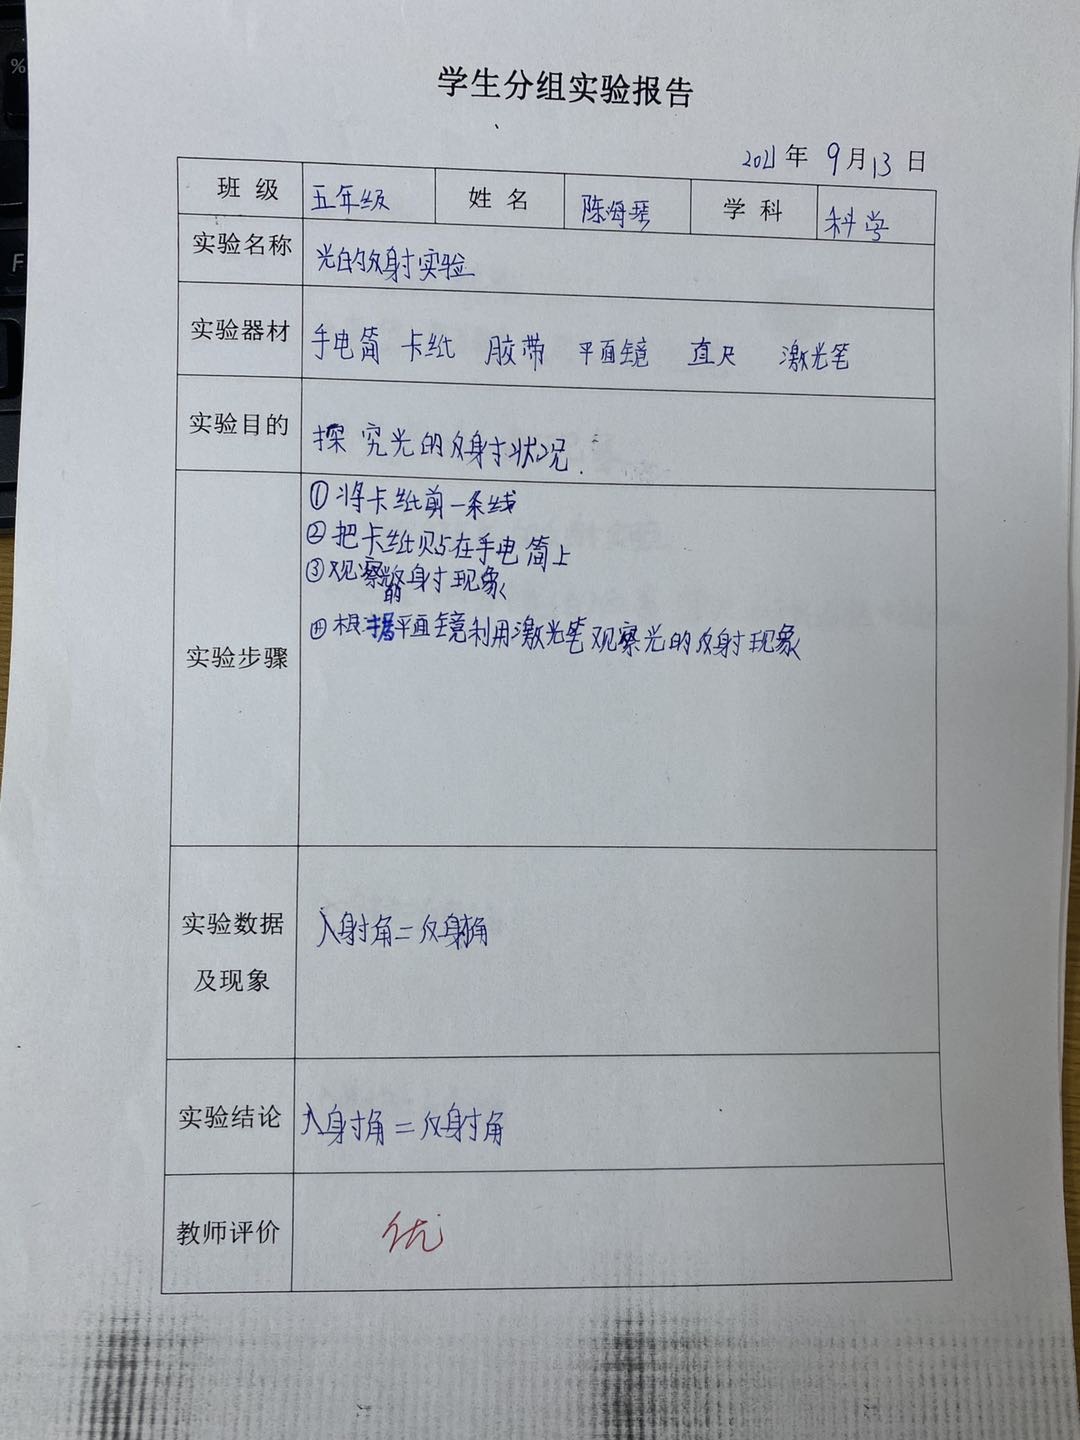 学生分组实验报告
2021年 9月13日
班 级 五年级 姓 名 陈海琴 学 科 科学
实验名称 光的反射实验
实验器材 手电筒 卡纸 胶带 平面镜 直尺 激光笔
实验目的 探究光的反射状况.
实验步骤
①将卡纸剪一条线
②把卡纸贴在手电筒上
③观察 的射现象
④根据平面镜利用激光笔观察光的反射现象
实验数据
及现象
入射角=反射角
实验结论 入射角=反射角
教师评价 优
%
F